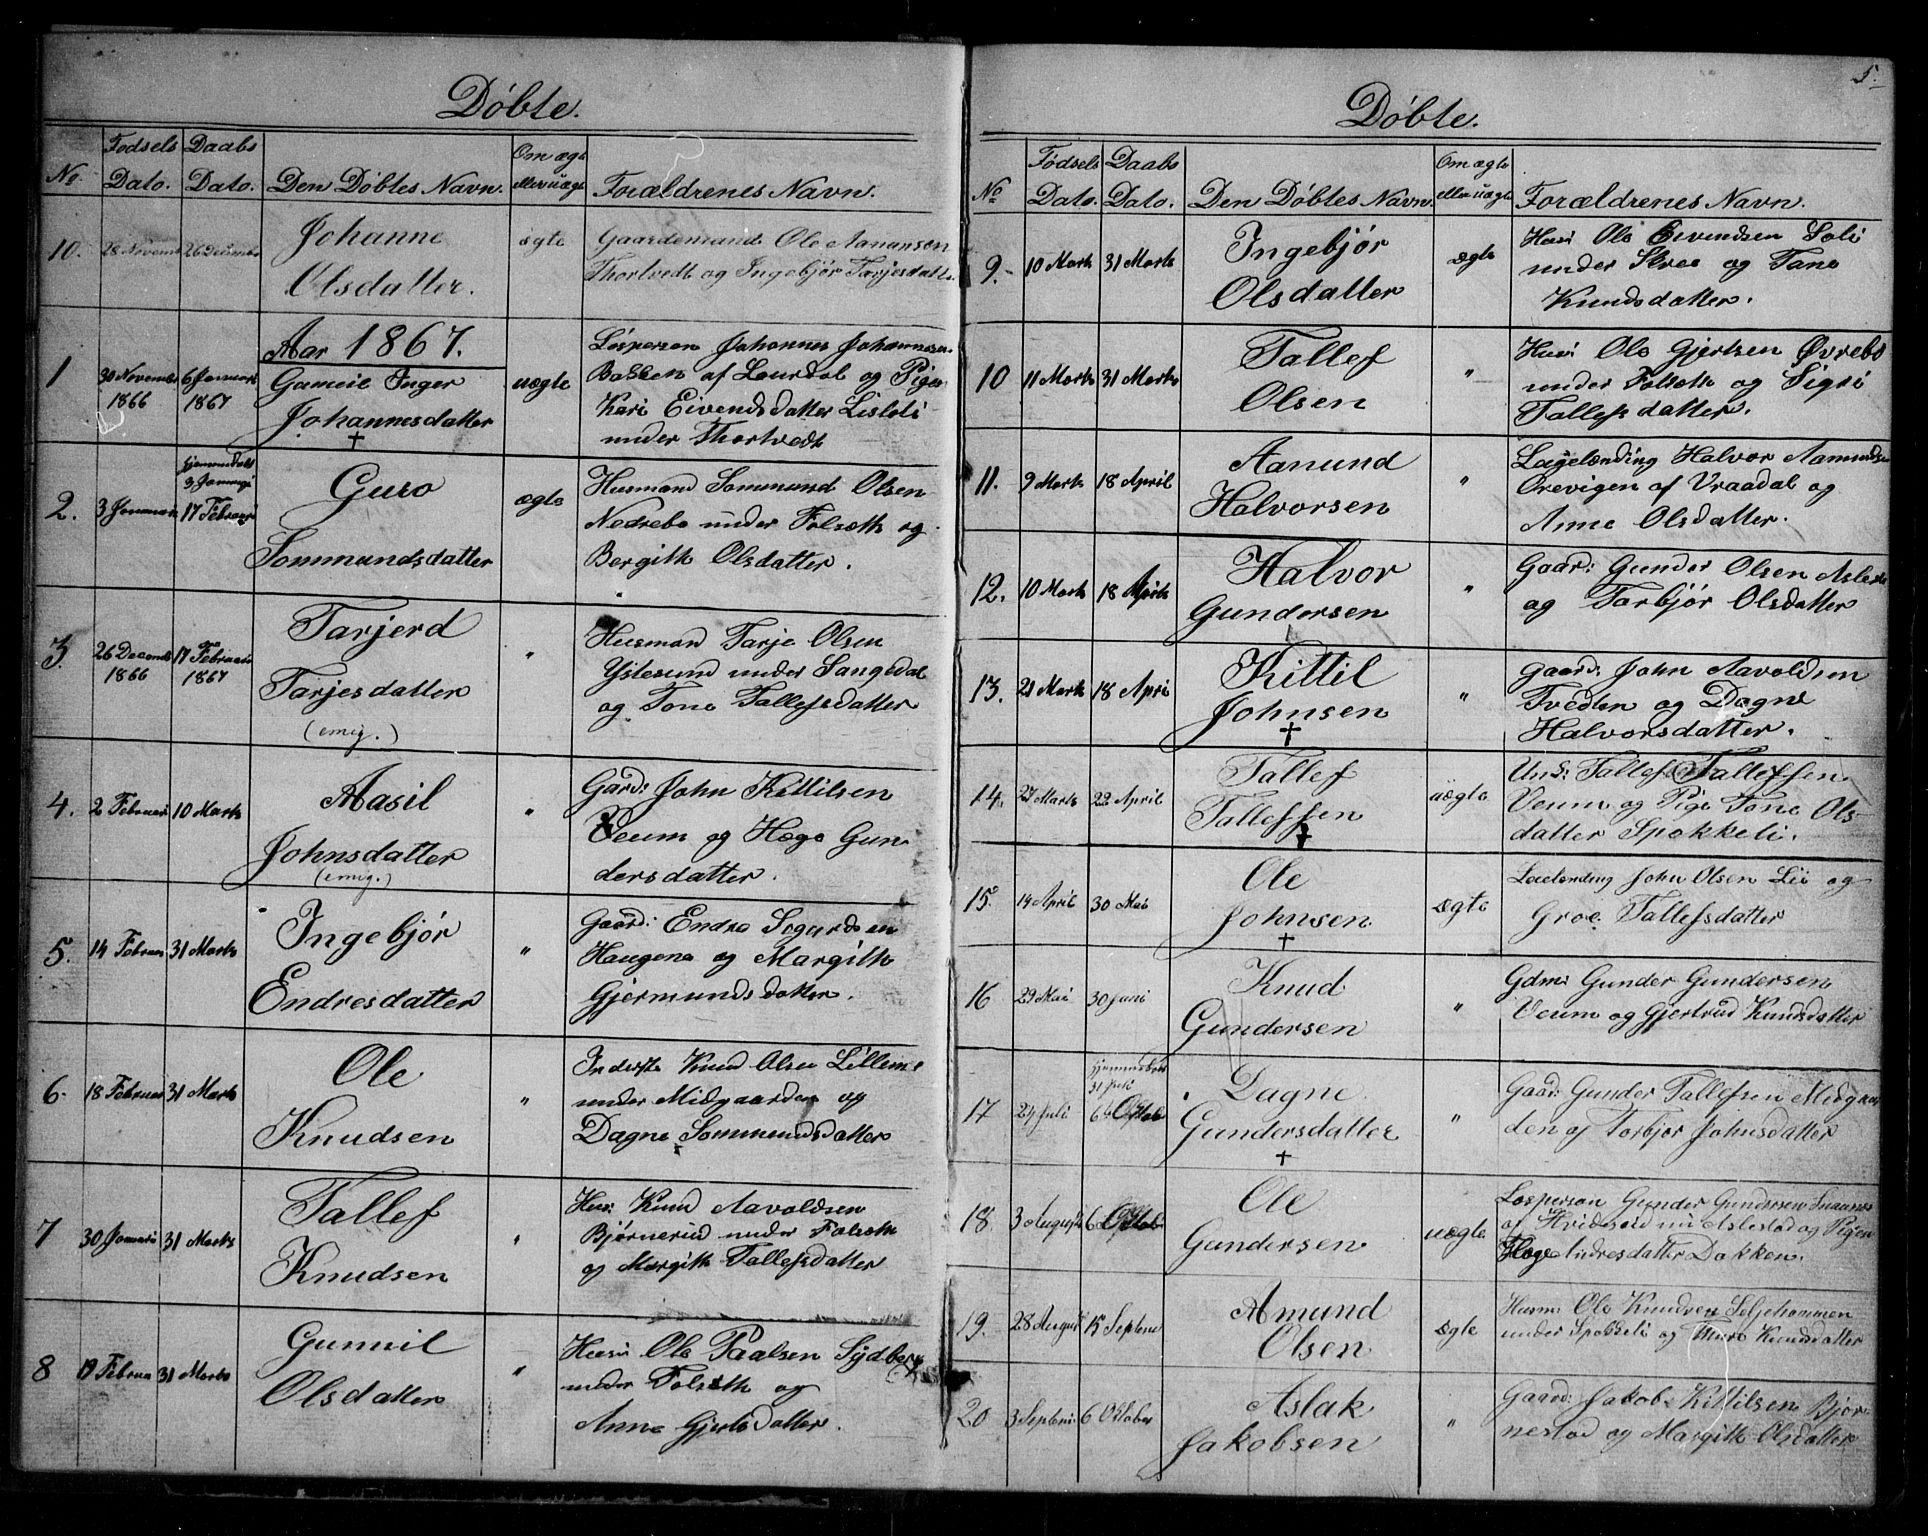 Døbte.
No Fødsels Dato. Daabs Dato. Den Døbtes Navn. Om ægte eller uægte Forældrenes Navn.
10. 28 Novemb 26 Decembr Johanne ægte Gaardemand Ole Aanansen
Olsdatter. Thortvedt og Ingebjør Tarjesdatter
Aar 1867.
1 30 Novembr 1866 6 Januar 1867 Gunild Inger uægte Løsperson Johannes Johannesen
Johannesdatter Bakken af Laurdal og Pigen
† Kari Eivendsdatter Lisleli
under Thortvedt
2. 3 Januar hjemmedøbt 3 Januari 17 Februari Guro ægte Husmand Sommund Olsen
Sommundsdatter Nedrebø under Folseth og
Bergith Olsdatter.
3. 26 Decemb 1866 17 Februari 1867 Tarjerd " Husmand Tarje Olsen
Tarjesdatter Ystesund under Sangedal
(emig.) og Tone Tallefsdatter
4. 2 Februar 10 Marts Aasil " Gard: John Kittilsen
Johnsdatter Veum og Hæge Gun
(emig.) dersdatter.
5. 14 Februar 31 Marts Ingebjør " Gaard: Endre Sigurdsen
Endresdatter Haugene og Margith
Gjermundsdatter.
6. 18 Februar 31 Marts Ole " Inderste Knud Olsen Lillemo
Knudsen under Midgaarden og
Dagne Sommundsdatter
7 30 Januari 31 Marts Tallef " Hus: Knud Aavoldsen
Knudsen Bjørnerud under Folseth
og Margith Tallefsdatter
8 17 Februa 31 Marts Gunnil " Hus: Ole Paalsen Sydberg
Olsdatter under Folseth og
Anne Gjertsdatter.
5.
Døbte.
No Fødsels Dato. Daabs Dato. Den Døbtes Navn Om ægte eller uægte Forældrenes Navn.
9. 10 Marts 31 Marts Ingebjør ægte Hus: Ole Eivendsen Loli
Olsdatter under Skree og Tone
Knudsdatter.
10 11 Marts 31 Marts Tallef " Hus: Ole Gjertsen Øvrebø
Olsen under Folseth og Sigri
Tallefsdatter.
11. 9 Marts 18 April Aanund " Lægelænding Halvor Aanundsen
Halvorsen Orevigen af Vraadal og
Anne Olsdatter.
12. 10 Marts 18 April Halvor " Gaar: Gunder Olsen
Gundersen og Tarbjør Olsdatter
13. 21 Marts 18 April Kittil " Gaard: John Aavoldsen
Johnsen Tvedten og Dagne
† Halvorsdatter.
14. 27 Marts 22 April Tallef uægte Und: Tallef Tallefsen
Tallefsen Veum og Pige Tone Ols
† datter Spokkeli.
15. 14 April 30 Mai Ole ægte Leielending John Olsen Lii og
Johnsen Groe Tallefsdatter
†
16 29 Mai 30 Juni Knud " Gdm: Gunder Gundersen
Gundersen Veum og Gjertrud Knudsdatter
17 24 Juli hjemmedøbt 31 Juli 6 Oktob Dagne " Gaard: Gunder Tallefsen Midgaar
Gundersdatter den og Torbjør Johnsdatter
†
18. 3 August 6 Oktob Ole uægte Løsperson Gunder Gundersen
Gundersen af Hvideseid nu Aslestad og Pigen
Hæge Endresdatter Dokken.
19. 28 August 15 Septem Amund ægte Husm: Ole Knudsen Seljehommen
Olsen under Spokkeli og Thore Knudsdatter
20 3 Septem 6 Oktober Aslak " Gaard: Jakob Kittilsen Bjør
Jakobsen nestad og Margith Olsdatter